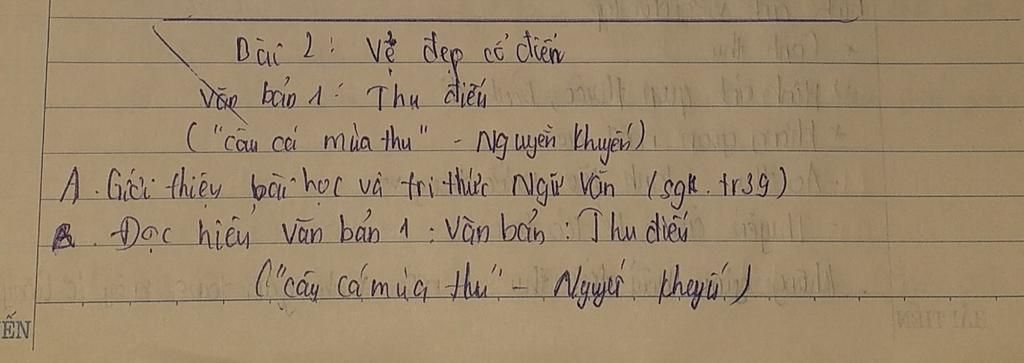 Bài 2: Vẻ đẹp cổ điển
Văn bản 1: Thu điếu
("Câu cá mùa thu" - Nguyễn Khuyến)
A. Giới thiệu bài học và tri thức Ngữ văn (sgk. tr39)
B. Đọc hiểu văn bản 1: Văn bản: Thu điếu
("Câu cá mùa thu" - Nguyễn Khuyến)
ẾN